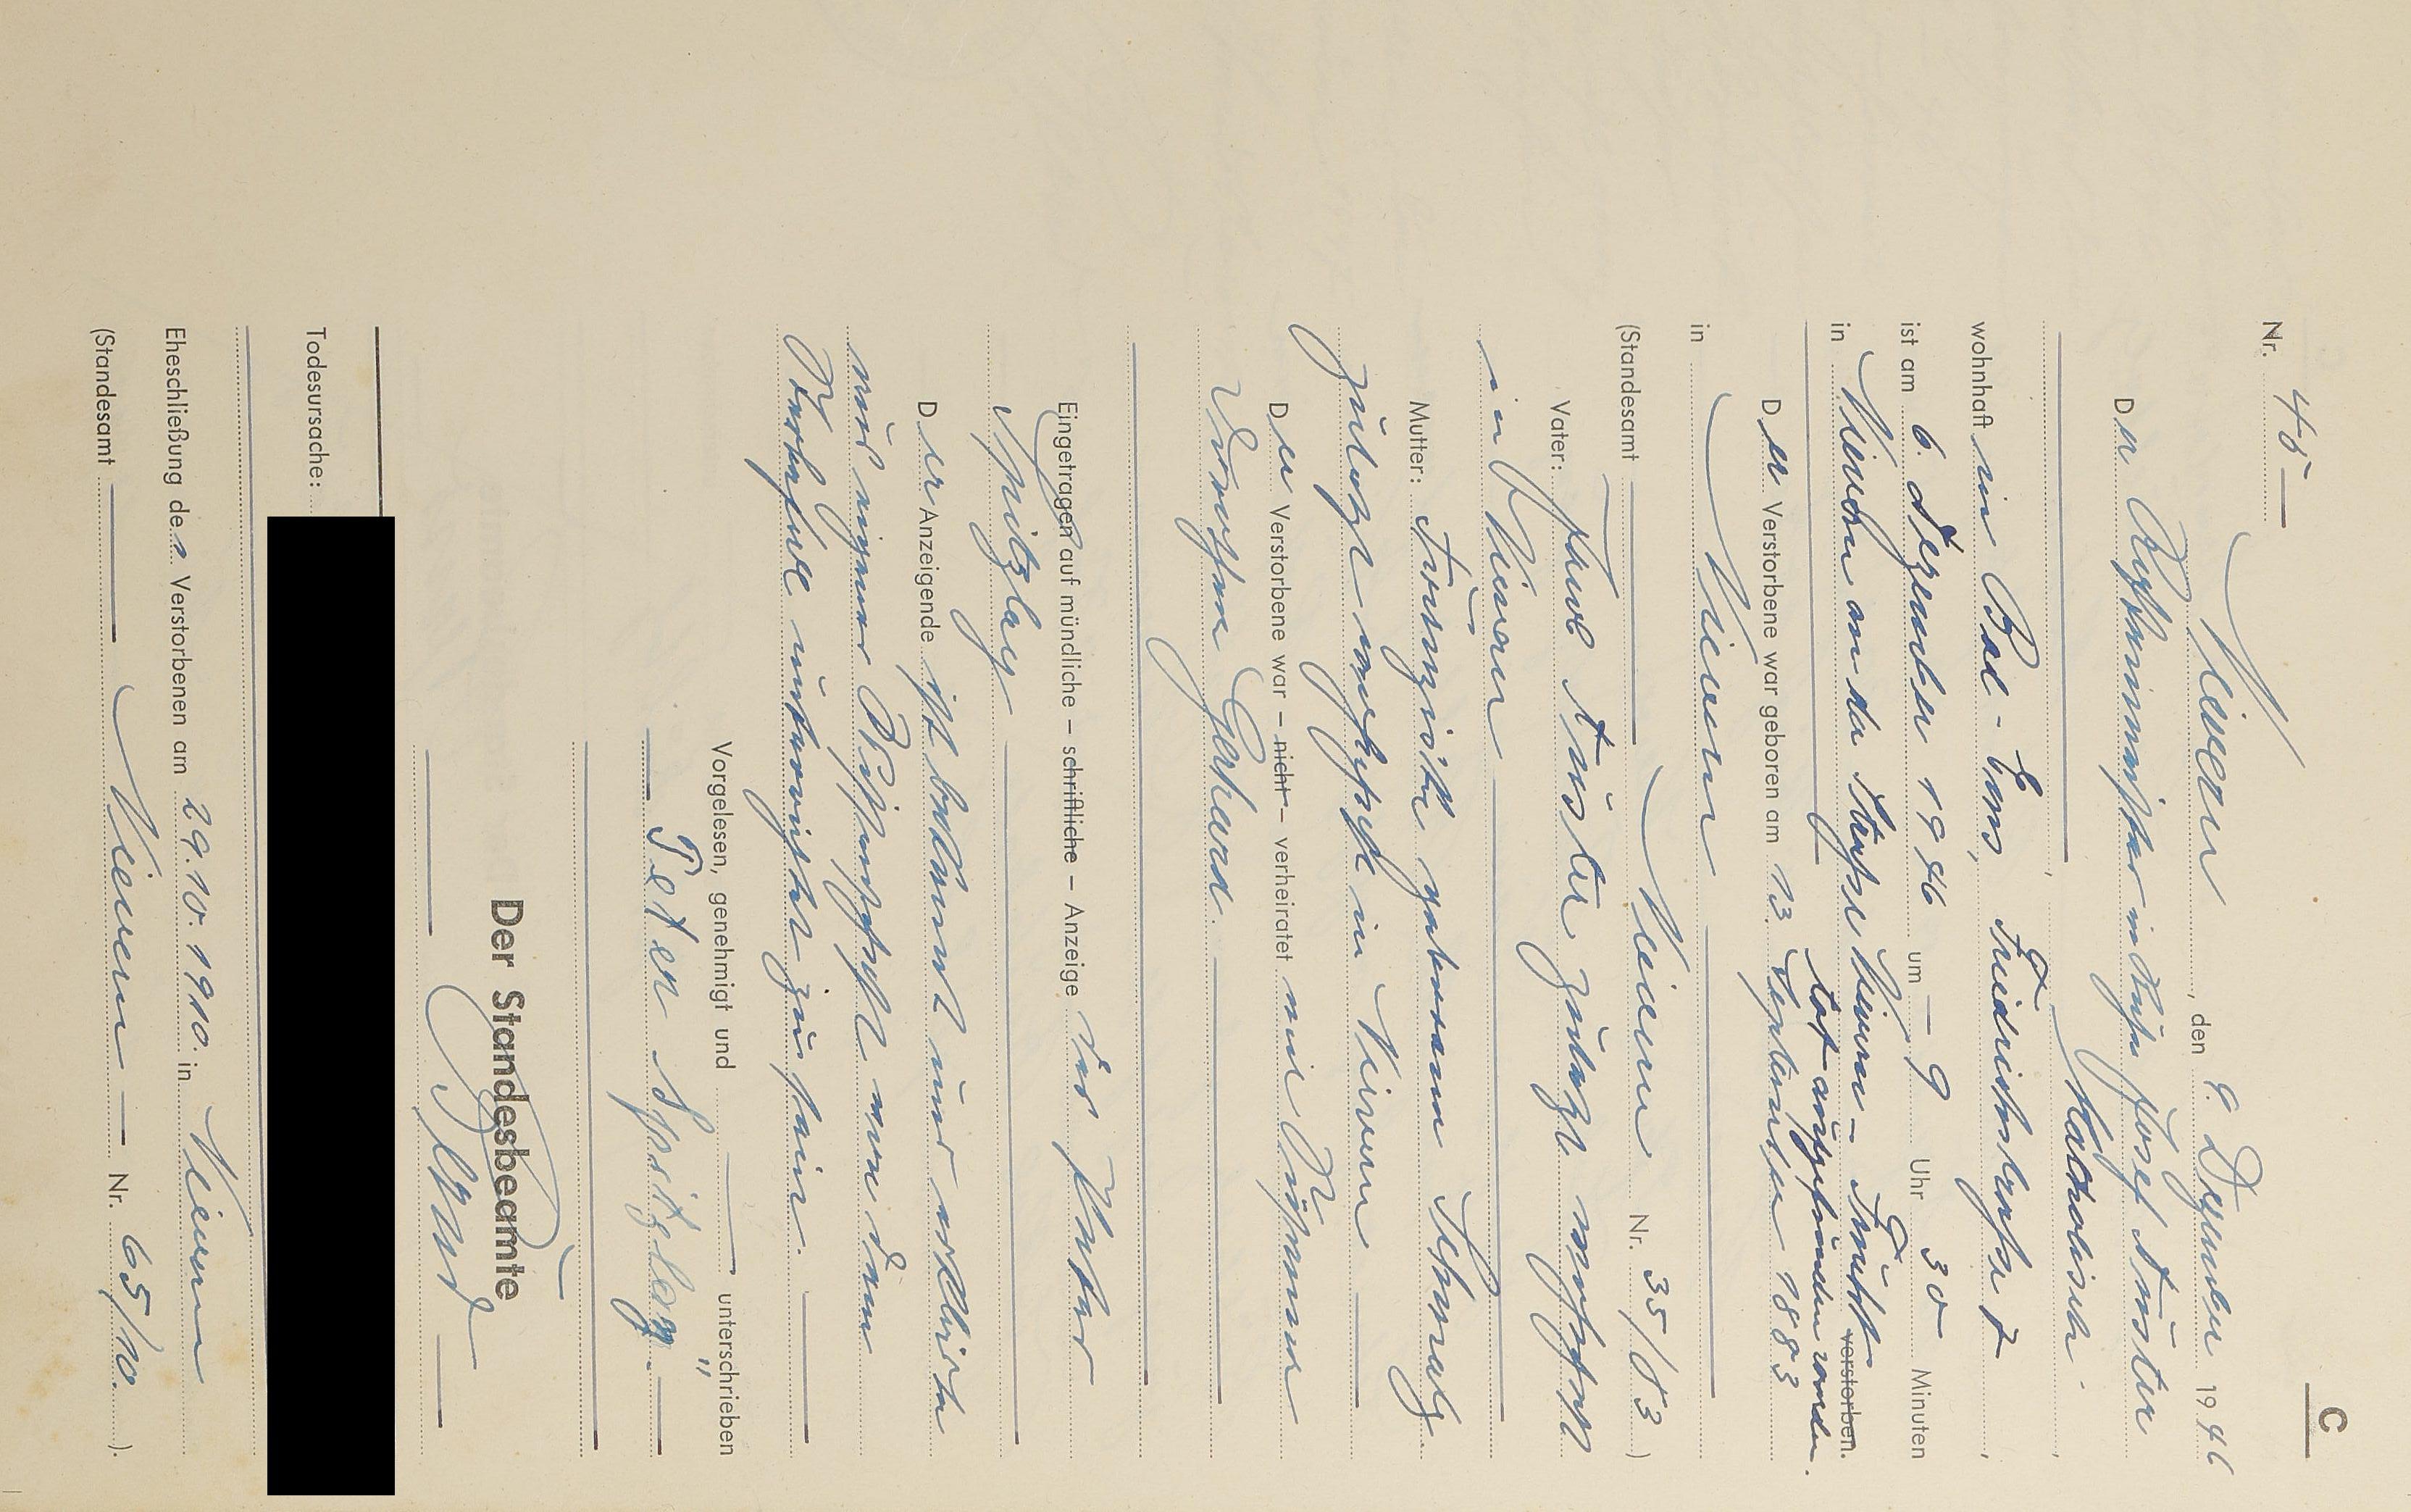 C
Nr. 45
Nievern, den 9. Dezember 1946
Der Rottenmeister in Ruhe Josef Küster
katholisch
wohnhaft in Bad-Ems, Friedrichstraße 7
ist am 6. Dezember 1946 um 9 Uhr 30 Minuten
in Nievern an der Straße Nievern - Frücht verstorben.
tot aufgefunden worden.
Der Verstorbene war geboren am 13. September 1883
in Nievern
(Standesamt Nievern Nr. 35/83)
Vater: Küster zuletzt wohnhaft
in Nievern
Mutter: Franziska geborene Schmalz
zuletzt wohnhaft in Nievern
Der Verstorbene war – nicht – verheiratet mit
Dorothea Gerhard.
Eingetragen auf mündliche – schriftliche – Anzeige des Peter
Spitzley
Der Anzeigende ist bekannt und erklärte
aus eigener Wissenschaft von dem
Sterbefall unterrichtet zu sein.
Vorgelesen, genehmigt und unterschrieben
Peter Spitzley.
Der Standesbeamte
Todesursache:
Eheschließung des Verstorbenen am 29.10.1910. in Nievern
(Standesamt Nievern Nr. 65/10.).